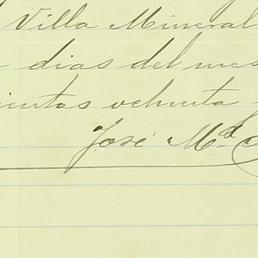 Villa Mineral
dias del mes
ientas ochenta
José Md